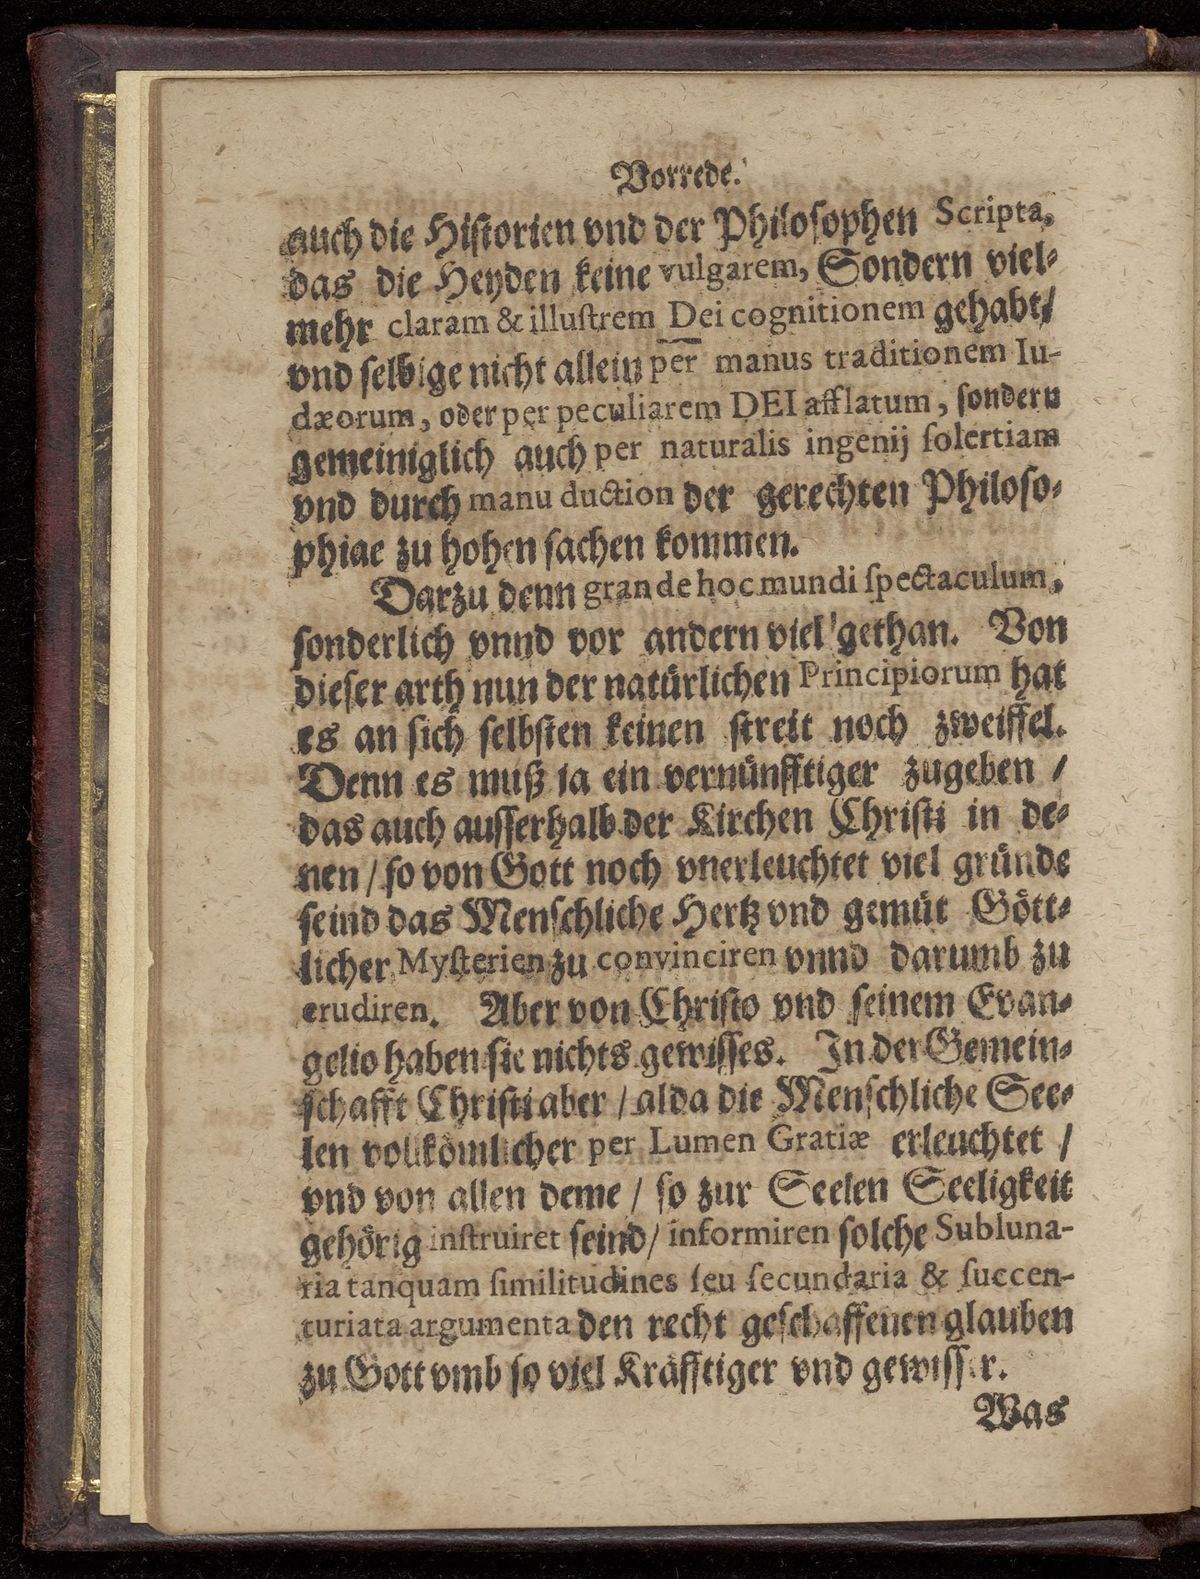 Vorrede.
auch die Historien vnd der Philosophen Scripta,
das die Heyden keine vulgarem, Sondern viel⸗
mehr claram & illuſtrem Dei cognitionem gehabt/
vnd ſelbige nicht allein per manus traditionem Iu-
dæorum, oder per peculiarem DEI afflatum, ſondern
gemeiniglich auch per naturalis ingenij ſolertiam
vnd durch manu duction der gerechten Philoſo⸗
phiae zu hohen ſachen kommen.
Darzu denn grande hoc mundi ſpectaculum,
ſonderlich vnnd vor andern viel gethan. Von
dieſer arth nun der natürlichen Principiorum hat
es an ſich ſelbſten keinen ſtreit noch zweiffel.
Denn es muß ja ein vernünfftiger zugeben /
das auch auſſerhalb der Kirchen Chriſti in de⸗
nen / ſo von Gott noch vnerleuchtet viel gründe
ſeind das Menſchliche Hertz vnd gemüt Gött⸗
licher Myſterien zu convinciren vnnd darumb zu
erudiren. Aber von Chriſto vnd ſeinem Evan⸗
gelio haben ſie nichts gewiſſes. In der Gemein⸗
ſchafft Chriſti aber / alda die Menſchliche See⸗
len vollkömlicher per Lumen Gratiæ erleuchtet /
vnd von allen deme / ſo zur Seelen Seeligkeit
gehörig inſtruiret ſeind / informiren ſolche Subluna-
ria tanquam ſimilitudines ſeu ſecundaria & ſuccen-
turiata argumenta den recht geſchaffenen glauben
zu Gott vmb ſo viel Kräfftiger vnd gewiſſer.
Was